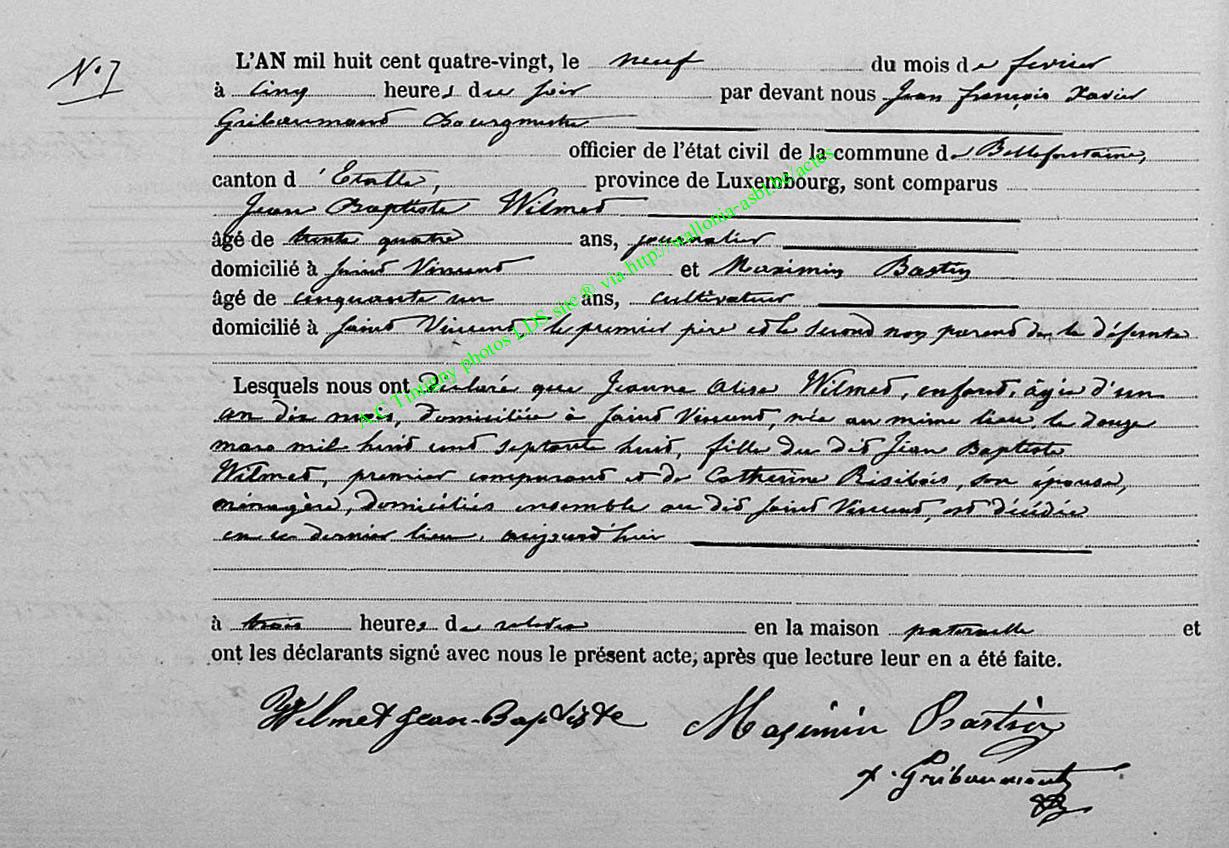 N° 7
L'AN mil huit cent quatre-vingt, le neuf du mois de fevrier
à cinq heures du soir par devant nous Jean françois Xavier
Gribaumont Bourgmestre
officier de l'état civil de la commune de Bellefontaine,
canton d'Etalle, province de Luxembourg, sont comparus
Jean Baptiste Wilmet
âgé de trente quatre ans, journalier
domicilié à Saint Vincent et Maximin Bastin
âgé de cinquante un ans, cultivateur
domicilié à Saint Vincent le premier père et le second non parent de la défunte
Lesquels nous ont déclaré que Jeanne Alise Wilmet, enfant, âgée d'un
an dix mois, domiciliée à Saint Vincent, née au même lieu le douze
mars mil huit cent septante huit, fille du dit Jean Baptiste
Wilmet, premier comparant et de Catherine Risibois, son épouse,
ménagère, domiciliés ensemble au dit Saint Vincent, est décédée
en ce dernier lieu, aujourd'hui
à trois heures de relevée en la maison paternelle et
ont les déclarants signé avec nous le présent acte, après que lecture leur en a été faite.
Wilmet Jean-Baptiste Maximin Bastin
x. Gribaumont
A.C Tintigny photos LDS site ® via http://wallonia-asbl.be/actes